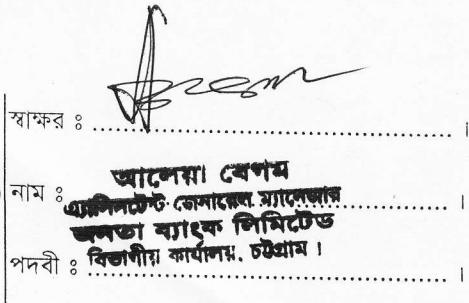 স্বাক্ষর ঃ ........................................ ।
আলেয়া বেগম
নাম ঃ এ্যাসিসটেন্ট জেনারেল ম্যানেজার ।
জনতা ব্যাংক লিমিটেড
পদবী ঃ বিভাগীয় কার্যালয়, চট্টগ্রাম । ।